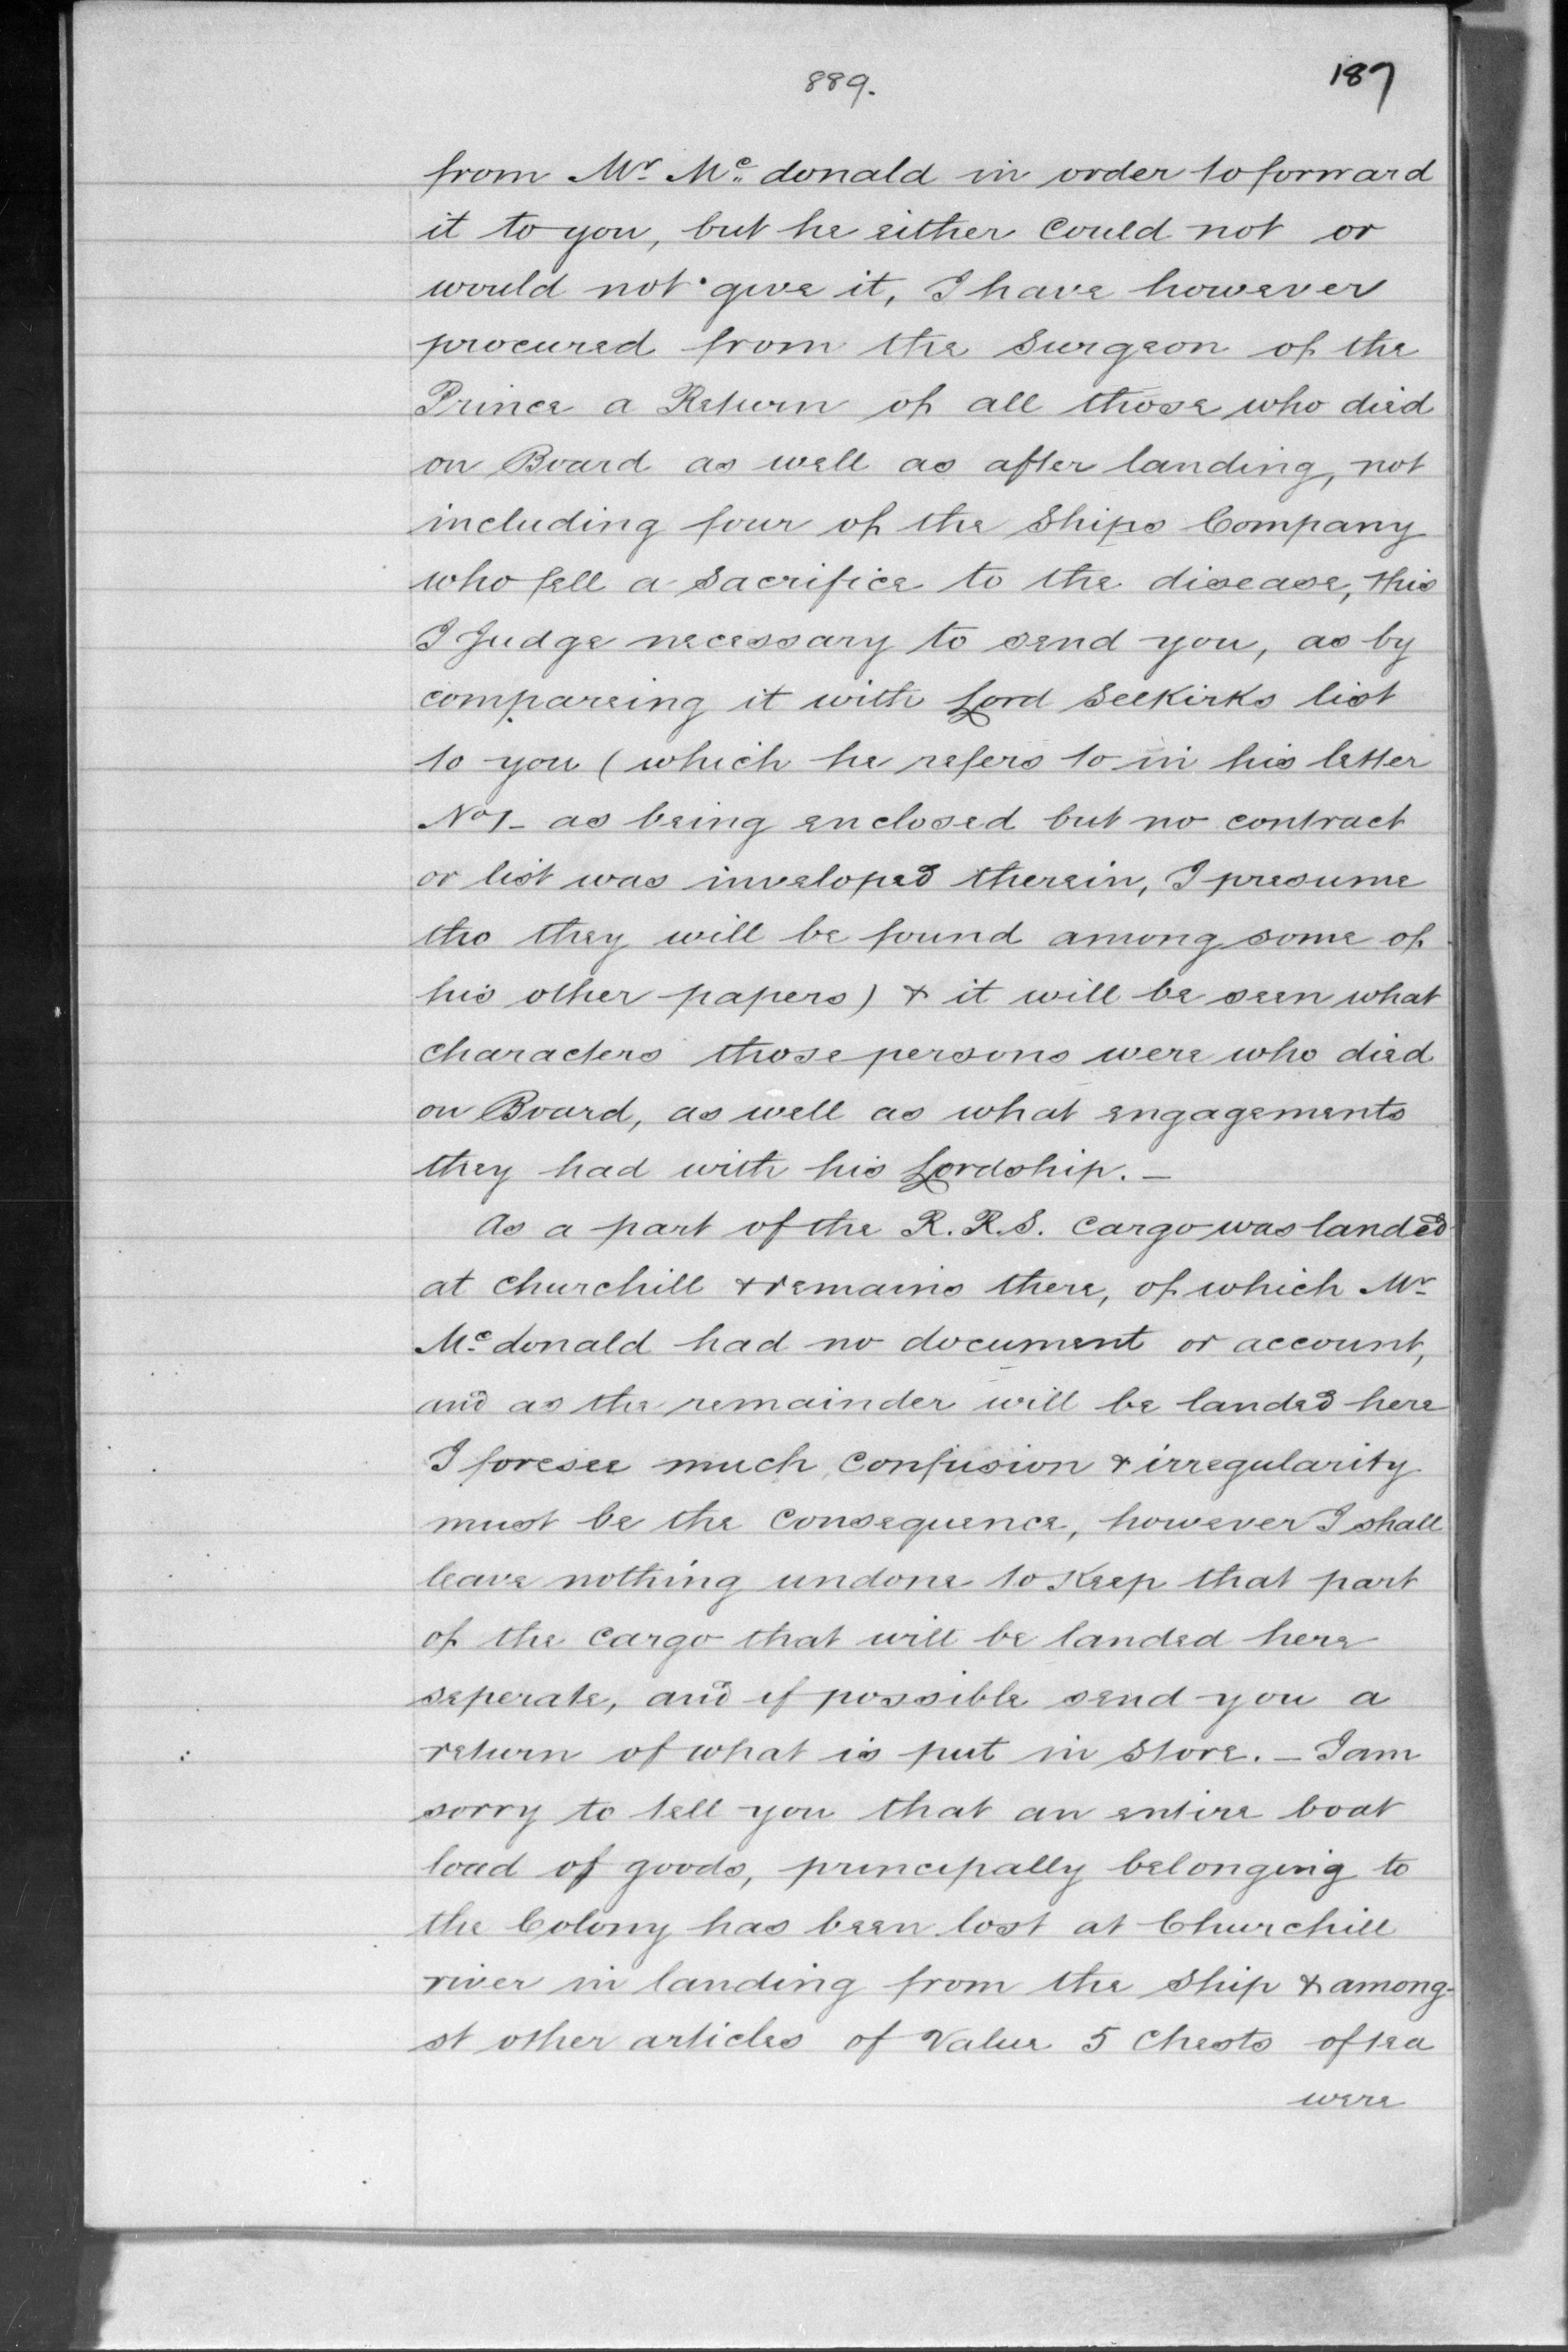 889.
187
from Mr. Mc. donald in order to forward
it to you, but he either Could not or
would not give it, I have however
procured from the Surgeon of the
Prince a Return of all those who died
on Board as well as after landing, not
including four of the Ships Company
who fell a Sacrifice to the disease, this
I Judge necessary to send you, as by
compareing it with Lord Selkirks list
to you (which he refers to in his letter
No 1 - as being enclosed but no contract
or list was inveloped therein, I presume
tho they will be found among some of
his other papers) & it will be seen what
characters those persons were who died
on Board, as well as what engagements
they had with his Lordship. -
As a part of the R.R.S. Cargo was landed
at Churchill & remains there, of which Mr.
Mc. donald had no document or account,
and as the remainder will be landed here
I foresee much Confusion & irregularity
must be the Consequence, however I shall
leave nothing undone to Keep that part
of the Cargo that will be landed here
seperate, and if possible send you a
return of what is put in Store. - I am
sorry to tell you that an entire boat
load of goods, principally belonging to
the Colony has been lost at Churchill
river in landing from the Ship & among-
st other articles of Value 5 Chests of tea
were